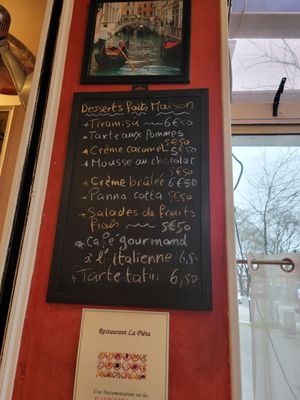 Desserts faits Maison
* Tiramisu ~ 6€50
* Tarte aux Pommes
5€50
* Crème caramel 5€50
* Mousse au chocolat
5€50
* Crème brûlée 6€50
* Panna cotta 5€50
* Salades de fruits
frais ~ 5€50
* Café gourmand
à l'italienne 6,50
* Tarte tatin 6,50
Restaurant La Piéta
Une Documentation sur les